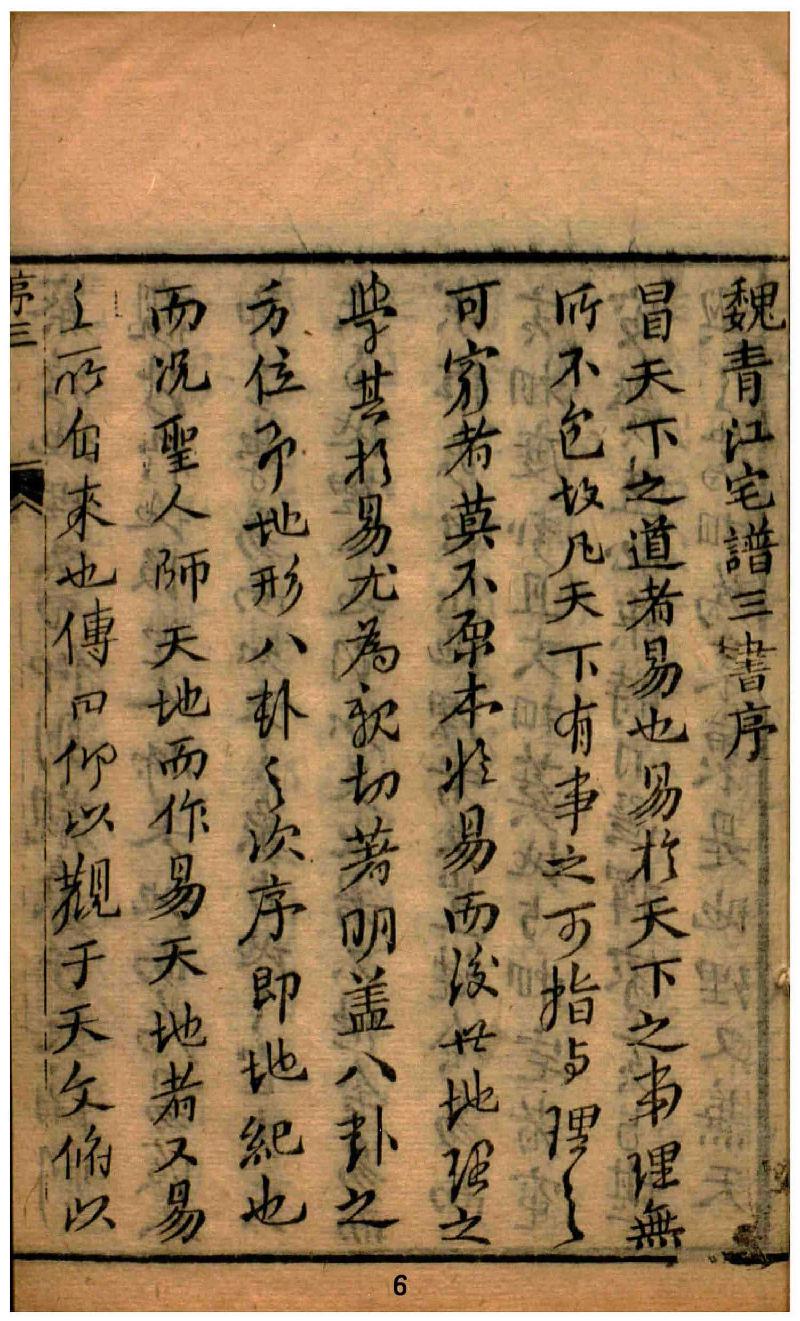 魏青江宅譜三書序
冒天下之道者易也易於天下之事理無
所不包故凡天下有事之可指与理之
可窮者莫不原本於易而後世地理之
學其於易尤為親切著明盖八卦之
方位即地形八卦之次序即地紀也
而况聖人師天地而作易天地者又易
之所自來也傳曰仰以觀于天文俯以
序三
6